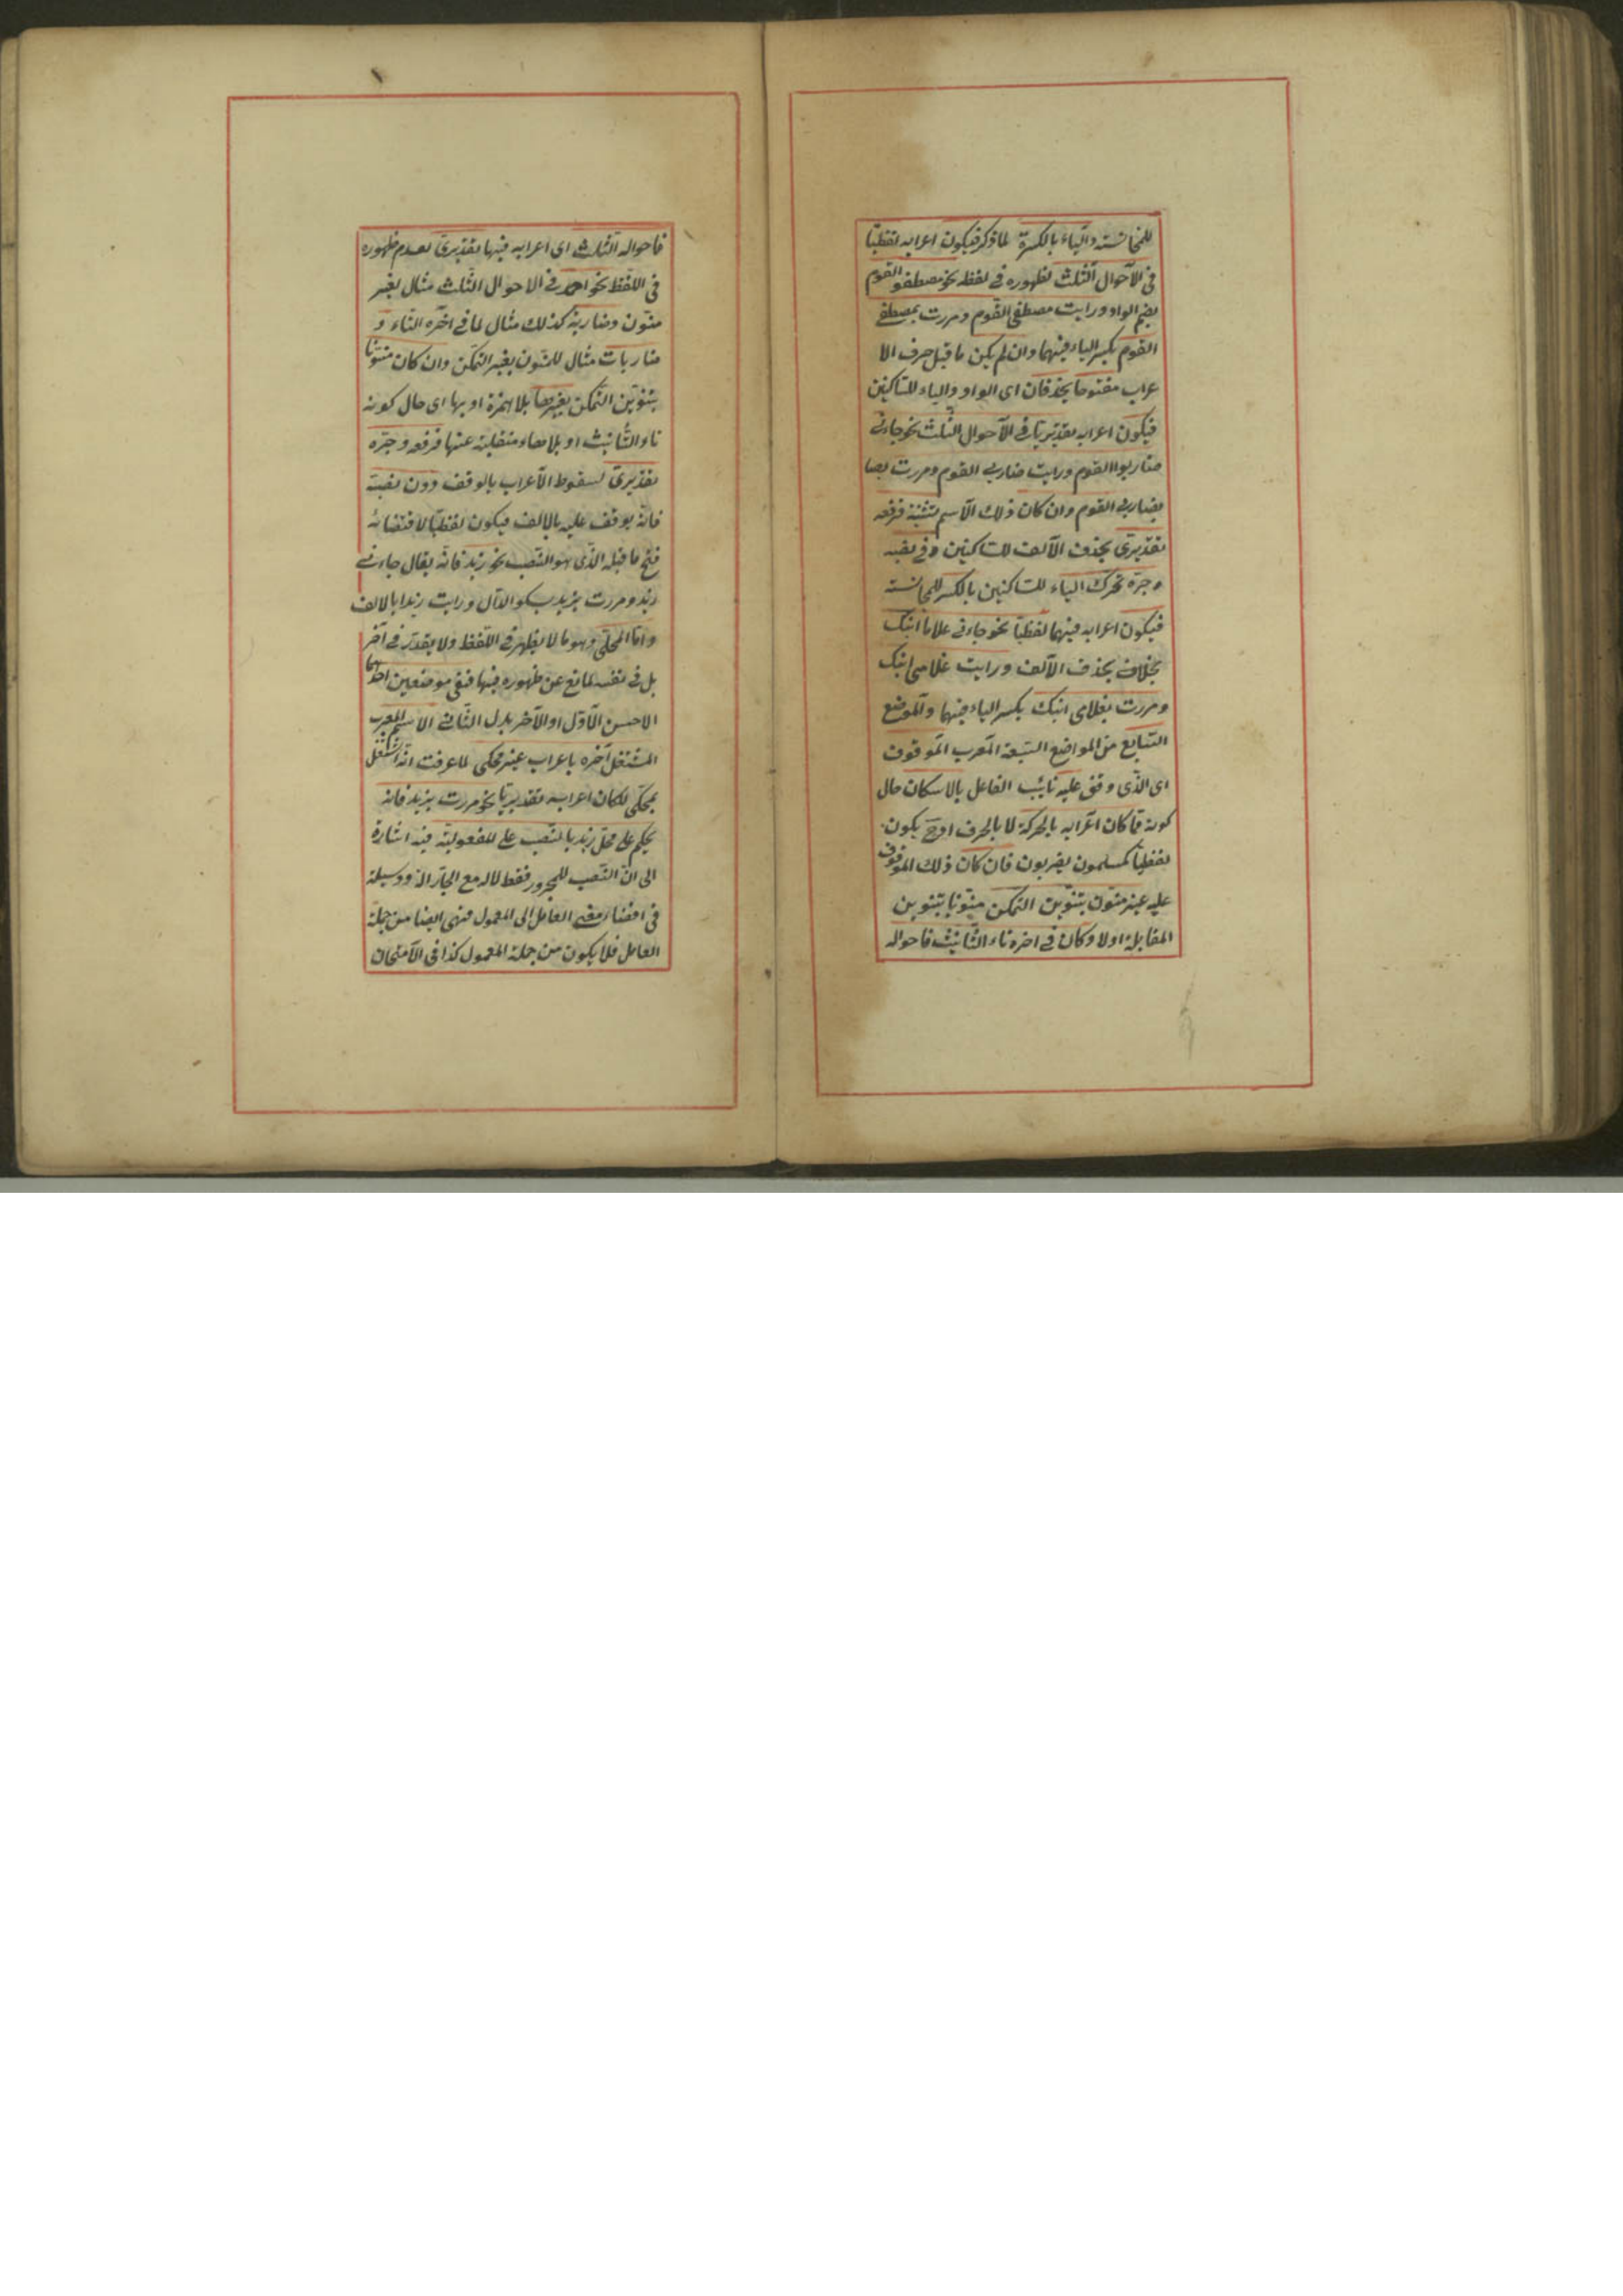 للمجانسة والياء بالكسرة لما ذكر فيكون اعرابه لفظيّا
فى الاحوال الثلث لظهوره فى لفظه نحو مصطفو القوم
بضم الواو ورايت مصطفى القوم ومررت بمصطفى
القوم بكسر الياء فيهما وان لم يكن ما قبل حرف الا
عراب مفتوحا يحذفان اى الواو والياء للساكنين
فيكون اعرابه تقديريّا فى الاحوال الثلث نحو جاءنى
ضاربوا القوم ورايت ضاربى القوم ومررت بضا
بضاربى القوم وان كان ذلك الاسم تثنية فرفعه
تقديرىّ بحذف الالف للساكنين وفى نصبه
وجرّه تحرك الياء للساكنين بالكسر للمجانسة
فيكون اعرابه فيهما لفظيّا نحو جاءنى غلاما ابنك
بحذف الالف ورايت غلامى ابنك
ومررت بغلامى ابنك بكسر الياء فيهما والموضع
السّابع من المواضع السّبعة المعرب الموقوف
اى الذى وقف عليه نائب الفاعل بالاسكان حال
كونه ممّا كان اعرابه بالحركة لا بالحرف اذ ح يكون
لفظيّا كمسلمون يضربون فان كان ذلك الموقوف
عليه غير منوّن بتنوين التمكن منوّنا بتنوين
المقابلة اولا وكان فى اخره تاء التّأنيث فاحواله
فاحواله الثلث اى اعرابه فيها تقديرىّ لعدم ظهوره
فى اللّفظ نحو احمد فى الاحوال الثّلث مثال لغير
منوّن وضاربة كذلك مثال لما فى اخره التاء و
ضاربات مثال للمنون بغير التمكن وان كان منوّنا
بتنوين التمكن بغيرها بلا همزة او بها اى حال كونه
تاء التّأنيث او بلا منقلبة عنها فرفعه وجرّه
تقديرىّ لسقوط الاعراب بالوقف دون نصبه
فانّه يوقف عليه بالالف فيكون لفظيّا لاقتضائه
فتح ما قبله الّذى هو النّصب نحو زيد فانّه يقال جاءنى
زيد ومررت بزيد بسكو الدّال ورايت زيدا بالالف
وامّا المحلّى وهو ما لا يظهر فى اللّفظ ولا يقدّر فى آخر
بل فى نفسه لمانع عن ظهوره فيها ففى موضعين احدهما
الاحسن الاوّل او الآخر بدل الثّانى الاسم المعرب
المشتغل آخره باعراب غير محكى لما عرفت انّه اشتغل
بمحكى لكان اعرابه تقديريّا نحو مررت بزيد فانه
يحكم على محل زيد بالنّصب على المفعوليّة فيه اشارة
الى انّ النّصب للمجرور فقط لا له مع الجارّ الذ ووسيلة
فى افضاء معنى العامل الى المعمول فهى ايضا من جملة
العامل فلا يكون من جملة المعمول كذا فى الامتحان